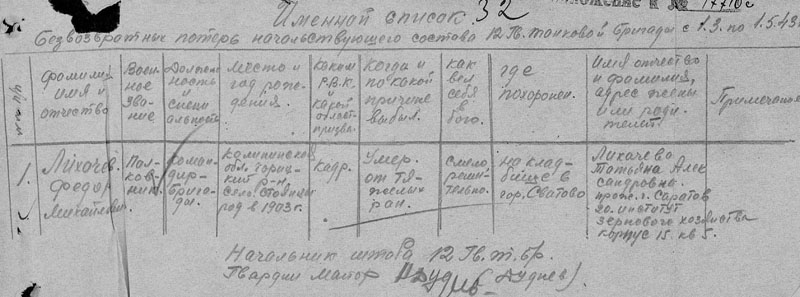 Приложение к № 17710с
Именной список 32
Безвозвратных потерь начальствующего состава 12 Гв. танковой бригады с 1.3. по 1.5.43г
фамилия имя и отчество
Воен-ное зва-ние
Должен-ность и специ-альность
Место и год рож-дения.
каким Р.В.К. и какой област. призван
Когда и по какой причине выбыл.
как вел себя в бою.
где похоронен.
Имя отчество и фамилия, адрес жены или роди-телей.
Примечание
1.
Лихачев Федор Михайлович
Пол-ков-ник.
коман-дир-брига-ды.
калининская обл. Гориц-кий р-н село Стоянцы род в 1903 г.
кадр.
Умер. от тя-желых ран.
смело, реши-тельно.
на клад-бище в гор. Сватово
Лихачева Татьяна Алек сандровна. прож. г. Саратов 20. институт зернового хозяйства корпус 15. кв 5.
Начальник штаба 12 Гв. т. бр.
Гвардии Майор (Дуднев).